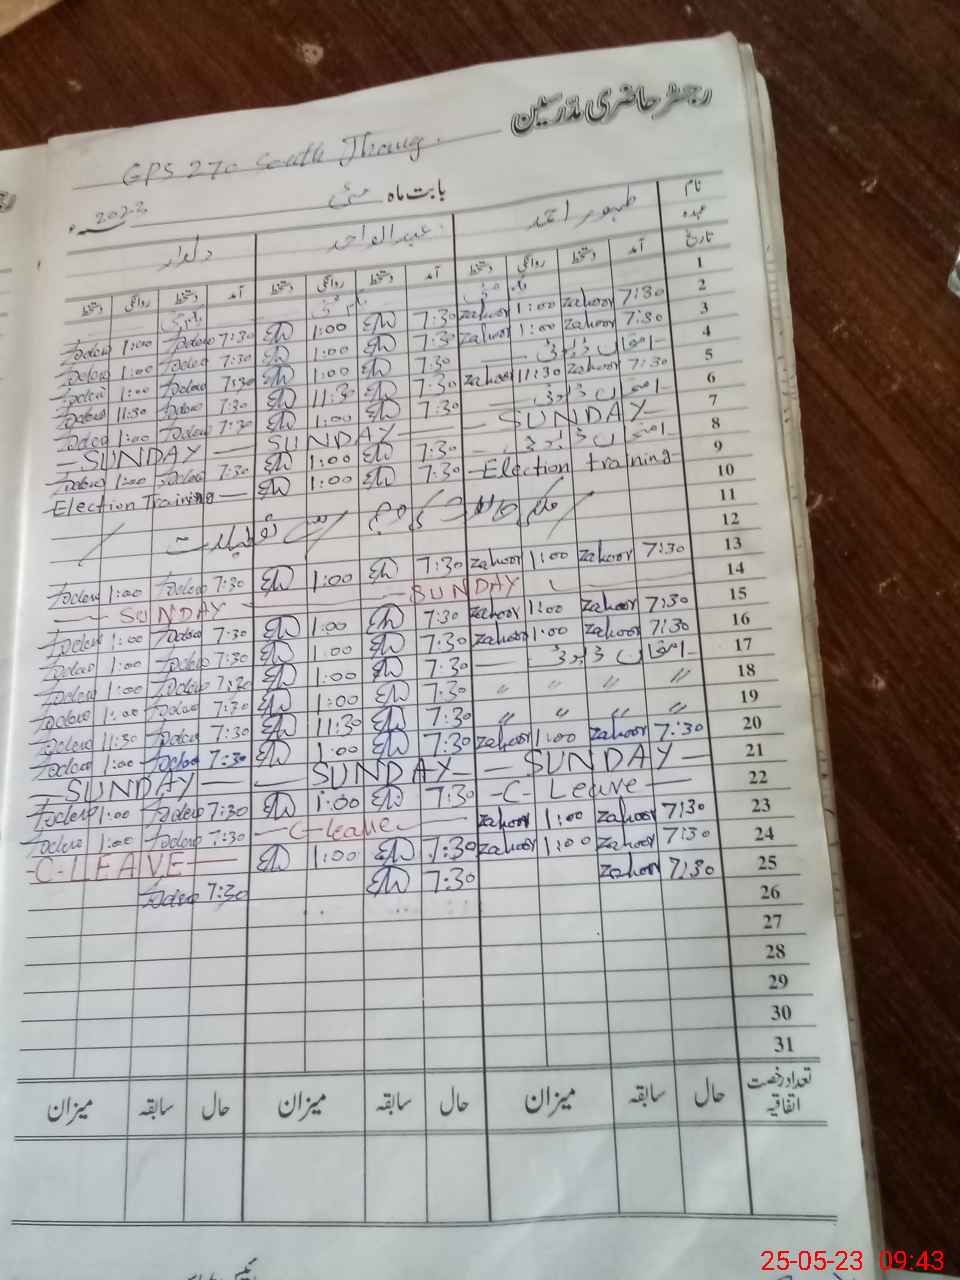 رجسٹر حاضری مدرسین
GPS 270 South Jhang.
بابت ماہ مئی 2023ء
نام ظہور احمد عبدالواحد دلدار
عہدہ
تاریخ آمد دستخط روانگی دستخط آمد دستخط روانگی دستخط آمد دستخط روانگی دستخط
1 یکم مئی یکم مئی یکم مئی
2 7:30 zahoor 1:00 zahoor 7:30 1:00 7:30 1:00
3 7:30 zahoor 1:00 zahoor 7:30 1:00 7:30 1:00
4 امتحان ڈیوٹی 7:30 1:00 7:30 1:00
5 7:30 zahoor 11:30 zahoor 7:30 11:30 7:30 11:30
6 امتحان ڈیوٹی 7:30 1:00 7:30 1:00
7 SUNDAY SUNDAY SUNDAY
8 امتحان ڈیوٹی 7:30 1:00 7:30 1:00
9 Election training 7:30 1:00 Election Training
10
11 ملکی حالات کی وجہ سے تعطیلات
12
13 7:30 zahoor 1:00 zahoor 7:30 1:00 7:30 1:00
14 SUNDAY SUNDAY
15 7:30 zahoor 1:00 zahoor 7:30 1:00 7:30 1:00
16 7:30 zahoor 1:00 zahoor 7:30 1:00 7:30 1:00
17 امتحان ڈیوٹی 7:30 1:00 7:30 1:00
18 〃 〃 〃 〃 7:30 1:00 7:30 1:00
19 〃 〃 〃 〃 7:30 11:30 7:30 11:30
20 7:30 zahoor 1:00 zahoor 7:30 1:00 7:30 1:00
21 SUNDAY SUNDAY SUNDAY
22 C-Leave 7:30 1:00 7:30 1:00
23 7:30 zahoor 1:00 zahoor C-leave 7:30 1:00
24 7:30 zahoor 1:00 zahoor 7:30 1:00 C-LEAVE
25 7:30 zahoor 7:30 7:30
26
27
28
29
30
31
تعداد رخصت اتفاقیہ حال سابقہ میزان حال سابقہ میزان حال سابقہ میزان
25-05-23 09:43